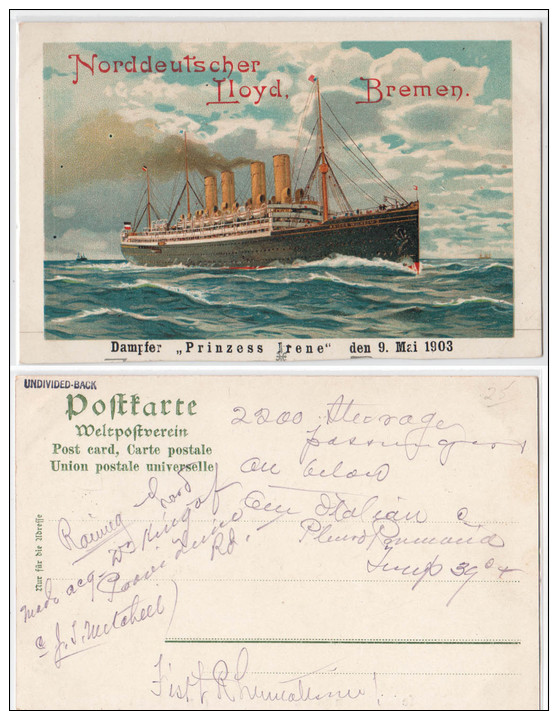 Norddeutscher
Lloyd, Bremen.
Dampfer „Prinzess Irene" den 9. Mai 1903
UNDIVIDED-BACK
25
Postkarte
Weltpostverein
Post card, Carte postale
Union postale universelle
Nur für die Adresse
2200 Steerage
passengers
on below
an Italian c
Pleuro Pneumonia
Temp 39° +
Raining hard
made acq. Dr King of
Rd.
& J. S. Mitchell)
First Rheumatism!